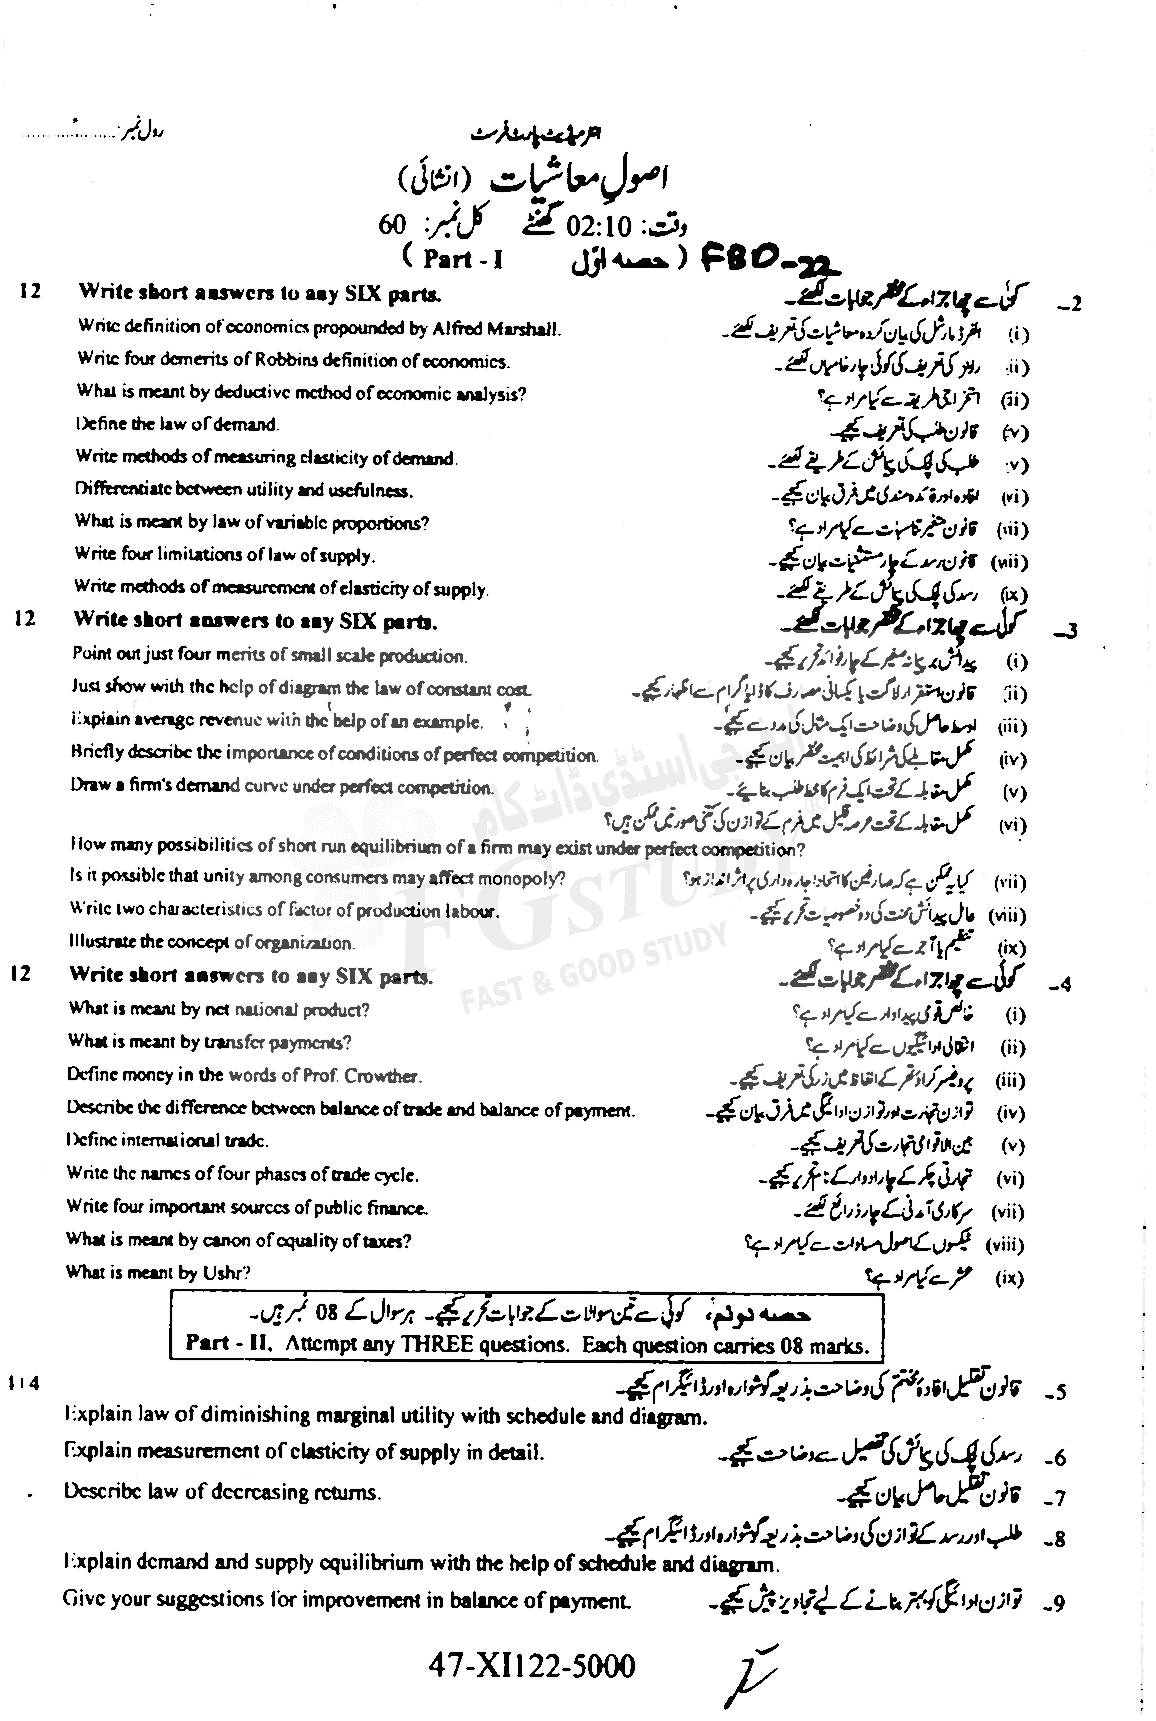 رول نمبر: ....................
انٹرمیڈیٹ پارٹ فرسٹ
اصولِ معاشیات (انشائی)
وقت: 02:10 گھنٹے کل نمبر: 60
( Part - I حصہ اوّل ) FBD-22
12 Write short answers to any SIX parts. کوئی سے چھ اجزاء کے مختصر جوابات لکھئے۔ 2-
Write definition of economics propounded by Alfred Marshall. الفرڈ مارشل کی بیان کردہ معاشیات کی تعریف لکھئے۔ (i)
Write four demerits of Robbins definition of economics. رابنز کی تعریف کی کوئی چار خامیاں لکھئے۔ (ii)
What is meant by deductive method of economic analysis? استخراجی طریقہ سے کیا مراد ہے؟ (iii)
Define the law of demand. قانون طلب کی تعریف کیجئے۔ (iv)
Write methods of measuring elasticity of demand. طلب کی لچک کی پیمائش کے طریقے لکھئے۔ (v)
Differentiate between utility and usefulness. افادہ اور فائدہ مندی میں فرق بیان کیجئے۔ (vi)
What is meant by law of variable proportions? قانون متغیر تناسبات سے کیا مراد ہے؟ (vii)
Write four limitations of law of supply. قانون رسد کے چار مستثنیات بیان کیجئے۔ (viii)
Write methods of measurement of elasticity of supply. رسد کی لچک کی پیمائش کے طریقے لکھئے۔ (ix)
12 Write short answers to any SIX parts. کوئی سے چھ اجزاء کے مختصر جوابات لکھئے۔ 3-
Point out just four merits of small scale production. پیدائش بر پیمانہ صغیر کے چار فوائد تحریر کیجئے۔ (i)
Just show with the help of diagram the law of constant cost. قانون استقرار لاگت یا یکسانی مصارف کا ڈایاگرام سے اظہار کیجئے۔ (ii)
Explain average revenue with the help of an example. اوسط حاصل کی وضاحت ایک مثال کی مدد سے کیجئے۔ (iii)
Briefly describe the importance of conditions of perfect competition. مکمل مقابلے کی شرائط کی اہمیت مختصر بیان کیجئے۔ (iv)
Draw a firm's demand curve under perfect competition. مکمل مقابلہ کے تحت ایک فرم کا خط طلب بنائیے۔ (v)
مکمل مقابلہ کے تحت عرصہ قلیل میں فرم کے توازن کی کتنی صورتیں ممکن ہیں؟ (vi)
How many possibilities of short run equilibrium of a firm may exist under perfect competition?
Is it possible that unity among consumers may affect monopoly? کیا یہ ممکن ہے کہ صارفین کا اتحاد اجارہ داری پر اثر انداز ہو؟ (vii)
Write two characteristics of factor of production labour. عامل پیدائش محنت کی دو خصوصیات تحریر کیجئے۔ (viii)
Illustrate the concept of organization. تنظیم یا آجر سے کیا مراد ہے؟ (ix)
ایف جی اسٹڈی ڈاٹ کام
FG STUDY ®
FAST & GOOD STUDY
12 Write short answers to any SIX parts. کوئی سے چھ اجزاء کے مختصر جوابات لکھئے۔ 4-
What is meant by net national product? خالص قومی پیداوار سے کیا مراد ہے؟ (i)
What is meant by transfer payments? انتقالی ادائیگیوں سے کیا مراد ہے؟ (ii)
Define money in the words of Prof. Crowther. پروفیسر کراؤتھر کے الفاظ میں زر کی تعریف کیجئے۔ (iii)
Describe the difference between balance of trade and balance of payment. توازن تجارت اور توازن ادائیگی میں فرق بیان کیجئے۔ (iv)
Define international trade. بین الاقوامی تجارت کی تعریف کیجئے۔ (v)
Write the names of four phases of trade cycle. تجارتی چکر کے چار ادوار کے نام تحریر کیجئے۔ (vi)
Write four important sources of public finance. سرکاری آمدنی کے چار ذرائع لکھئے۔ (vii)
What is meant by canon of equality of taxes? ٹیکسوں کے اصول مساوات سے کیا مراد ہے؟ (viii)
What is meant by Ushr? عشر سے کیا مراد ہے؟ (ix)
حصہ دوئم، کوئی سے تین سوالات کے جوابات تحریر کیجئے۔ ہر سوال کے 08 نمبر ہیں۔
Part - II, Attempt any THREE questions. Each question carries 08 marks.
114 قانون تقلیل افادہ مختتم کی وضاحت بذریعہ گوشوارہ اور ڈائیگرام کیجئے۔ 5-
Explain law of diminishing marginal utility with schedule and diagram.
Explain measurement of elasticity of supply in detail. رسد کی لچک کی پیمائش کی تفصیل سے وضاحت کیجئے۔ 6-
Describe law of decreasing returns. قانون تقلیل حاصل بیان کیجئے۔ 7-
طلب اور رسد کے توازن کی وضاحت بذریعہ گوشوارہ اور ڈائیگرام کیجئے۔ 8-
Explain demand and supply equilibrium with the help of schedule and diagram.
Give your suggestions for improvement in balance of payment. توازن ادائیگی کو بہتر بنانے کے لیے تجاویز پیش کیجئے۔ 9-
47-XI122-5000